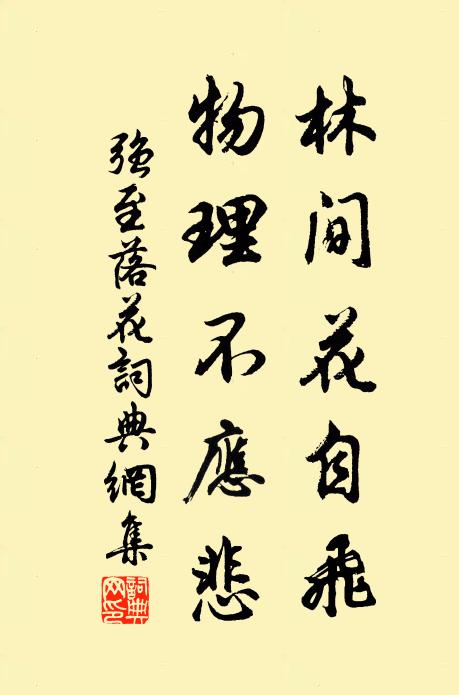 林間花自飛
物理不應悲
強至落花詞典網集
詞典網印